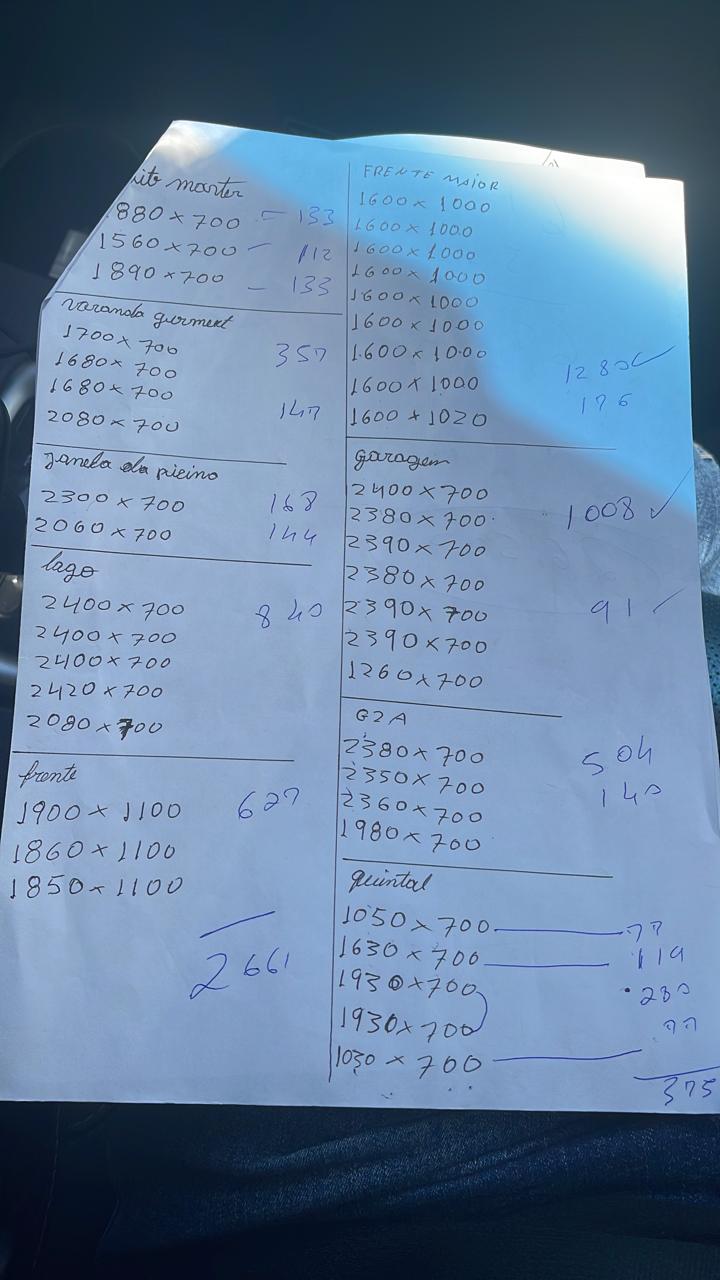 uito marter
880 x 700 - 133
1560 x 700 - 112
1890 x 700 - 133
varanda gurment
1700 x 700
1680 x 700 357
1680 x 700
2080 x 700 147
Janela da picino
2300 x 700 168
2060 x 700 144
lago
2400 x 700 840
2400 x 700
2400 x 700
2420 x 700
2080 x 700
frente
1900 x 1100 627
1860 x 1100
1850 x 1100
2661
FRENTE MAIOR
1600 x 1000
1600 x 1000
1600 x 1000
1600 x 1000
1600 x 1000
1600 x 1000
1600 x 1000
1600 x 1000 1280 ✓
1600 x 1020 176
garagem
2400 x 700
2380 x 700 1008 ✓
2390 x 700
2380 x 700
2390 x 700 91 ✓
2390 x 700
1260 x 700
G2A
2380 x 700 504
2350 x 700 140
2360 x 700
1980 x 700
quintal
1050 x 700 77
1630 x 700 119
1930 x 700 280
1930 x 700 77
1030 x 700
375